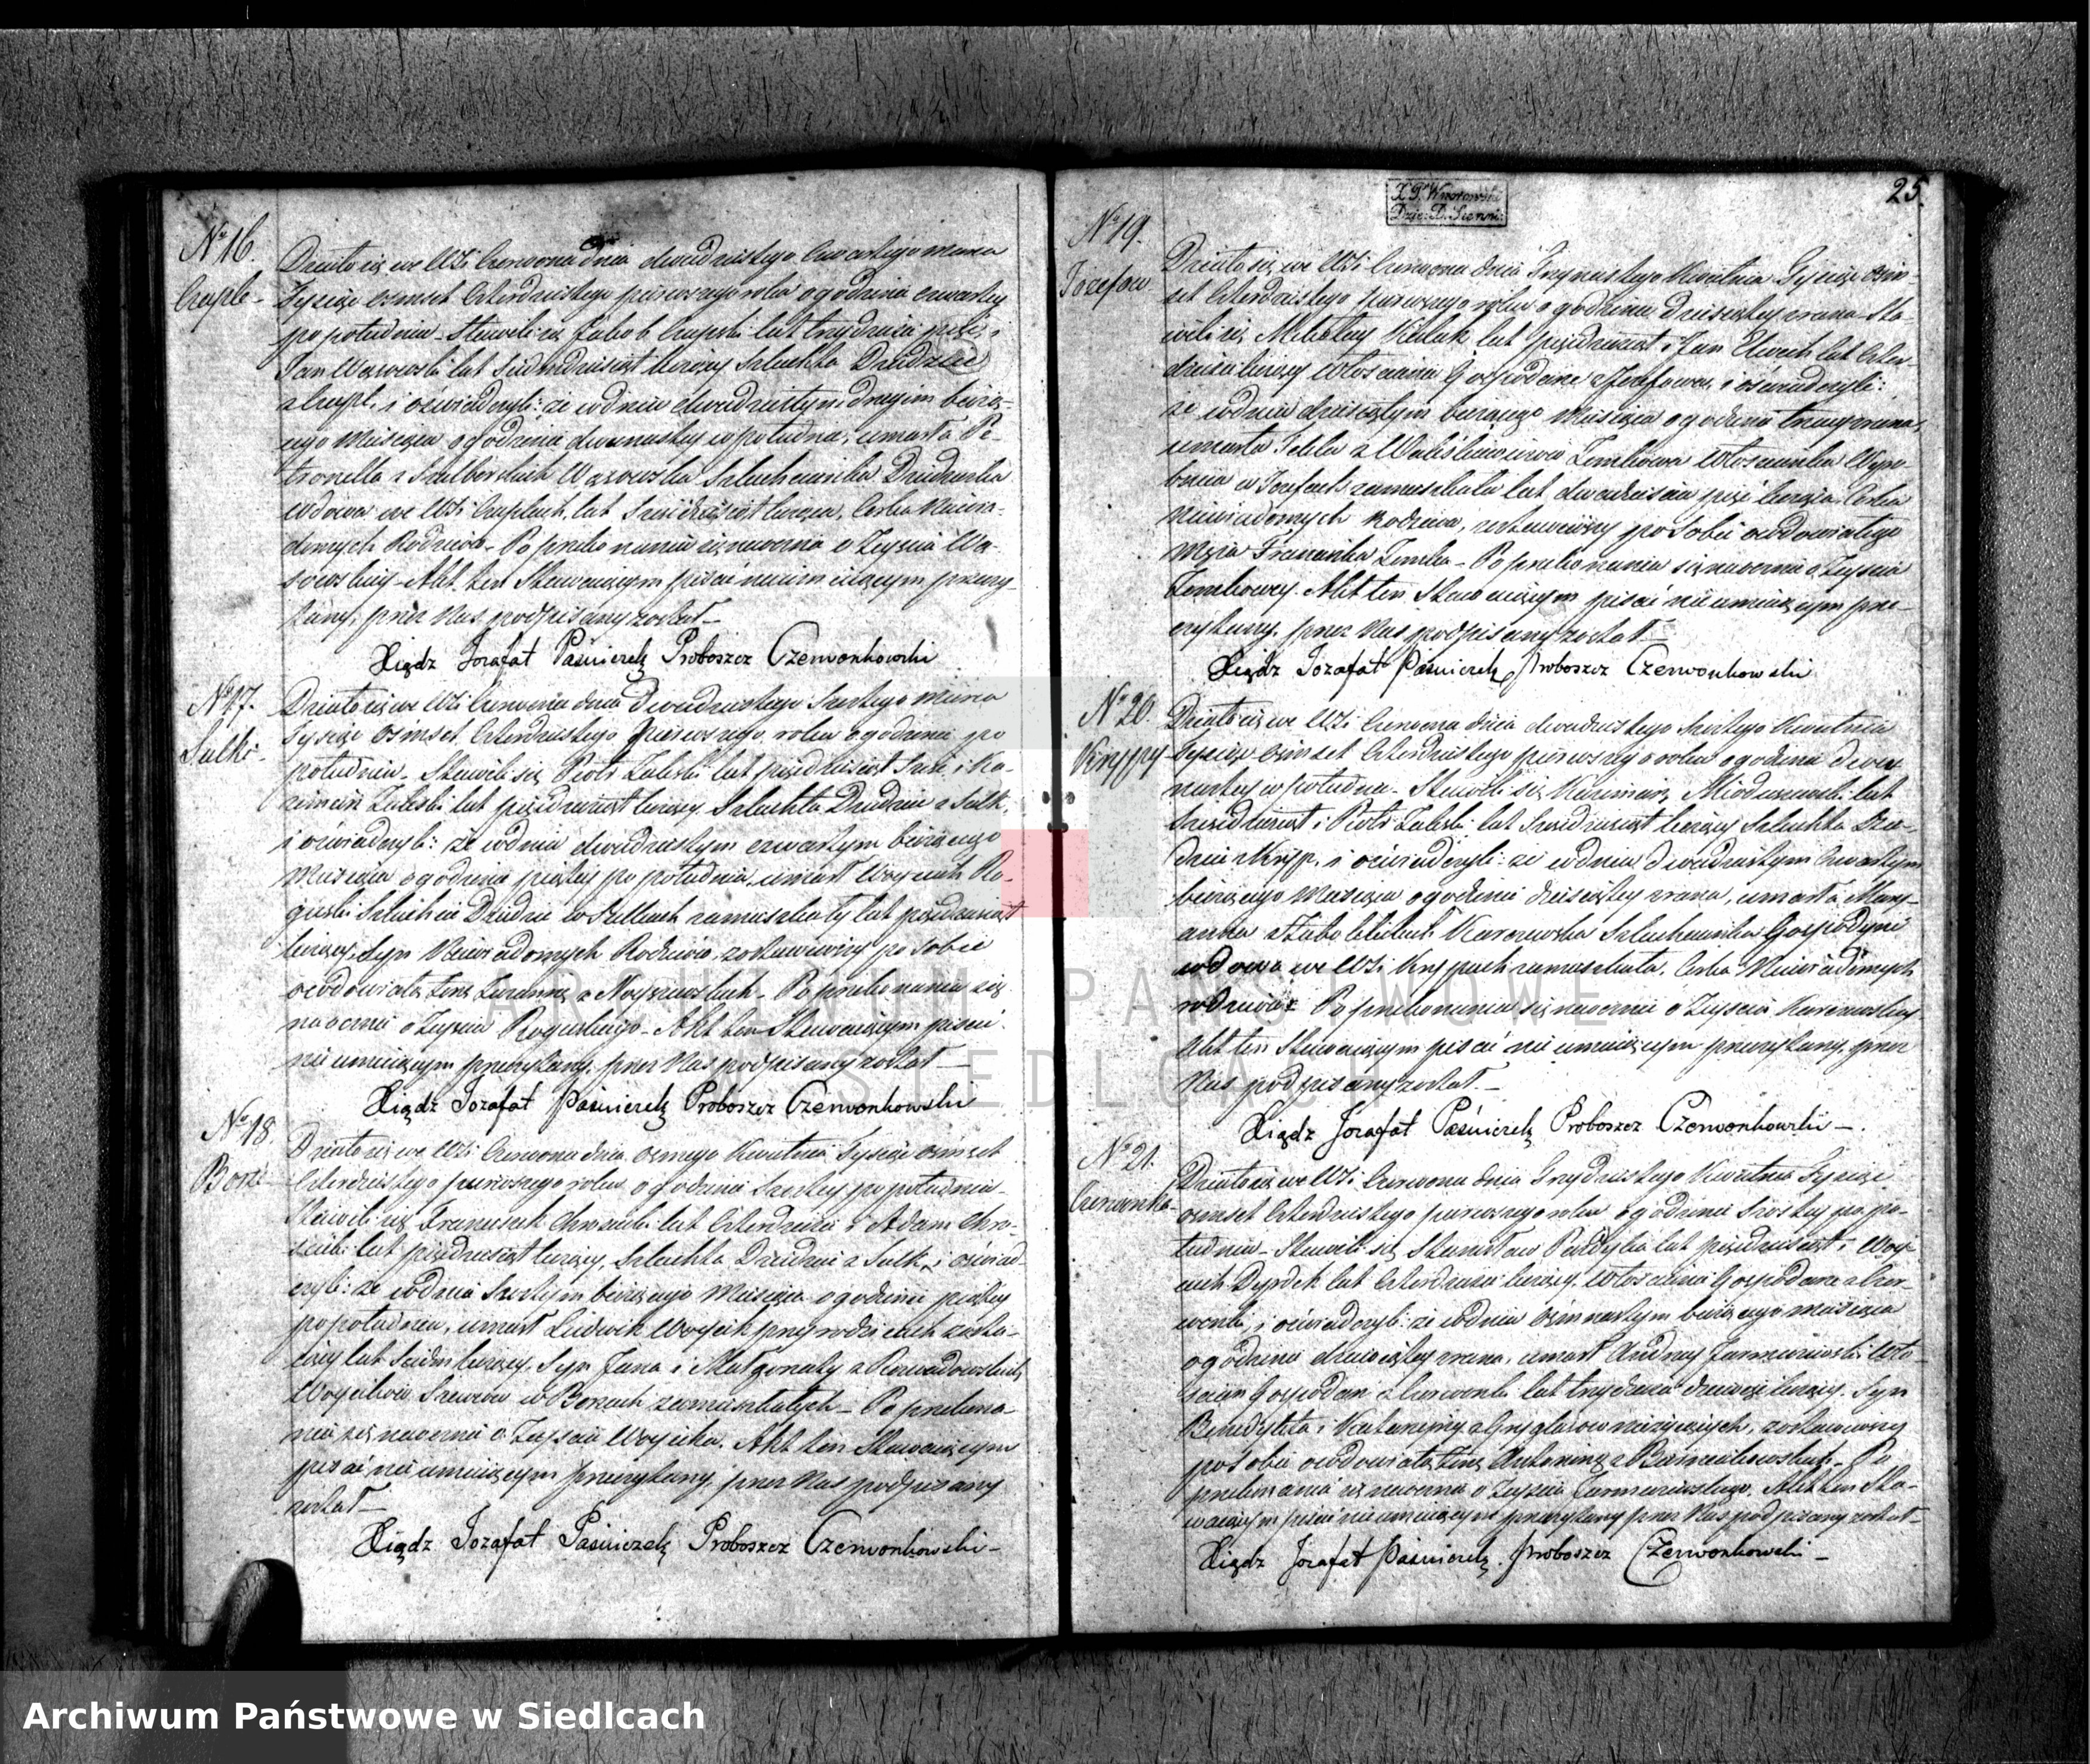 25.
X. P. W
Dzie: D. Sienni:
№ 16.
Czaple -
Działo się we Wsi Czerwona dnia dwudziestego czwartego Marca
Tysiąc osmset czterdziestego pierwszego roku o godzinie czwartey
po południu - Stawili się Jakob Czapski lat trzydzieści pięć, i
Jan Wąsowski lat siedmdziesiąt liczący Szlachta Dziedzice
z Czapl. i oświadczyli: że w dniu dwudziestym drugim bieżą-
cego Miesiąca o godzinie dwunastey w południe, umarła Pe-
tronella z Wąsowska Szlachcianka Dziedziczka
wdowa we Wsi Czaplach, lat sześćdziesiąt licząca, Corka Niewia-
domych Rodziców - Po przekonaniu się naocznie o Zejściu Wą-
sowskiey - Akt ten Stawaiącym pisać nieumieiącym przeczy-
tany, przez Nas podpisany został -
Xiądz Jozafat Paśniczek Proboszcz Czerwonkowski
№ 17.
Sulki -
Działo się we Wsi Czerwona dnia Dwudziestego Szostego Marca
Tysiąc Osmset Czterdziestego pierwszego roku o godzinie po
południu - Stawili się Piotr Zaleski lat pięćdziesiąt Sześć, i Ka-
zimierz Zaleski lat pięćdziesiąt liczący, Szlachta Dziedzice z Sulk,
i oświadczyli: że w dniu dwudziestym czwartym bieżącego
Miesiąca o godzinie piątey po południu, umarł Woyciech Ro-
guski Szlachcic Dziedzic w Sulkach zamieszkały lat pięćdziesiąt
liczący, Syn Niewiadomych Rodziców, zostawiwszy po Sobie
owdowiałą żonę Zuzannę z - Po przekonaniu się
naocznie o Zejściu Roguskiego - Akt ten Stawaiącym pisać
nie umieiącym przeczytany, przez Nas podpisany został -
Xiądz Jozafat Paśniczek Proboszcz Czerwonkowski
№ 18.
Borki -
Działo się we Wsi Czerwona dnia osmego Kwietnia Tysiąc osmset
Czterdziestego pierwszego roku o godzinie Szostey po południu -
Stawili się Franciszek lat Czterdzieści i Adam
lat pięćdziesiąt liczący, Szlachta Dziedzice z Sulk, i oświad-
czyli: że w dniu Szostym bieżącego Miesiąca o godzinie piątey
po południu, umarł Ludwik Woycik przy rodzicach zosta-
iący lat Siedm liczący, Syn Jana i Małgorzaty z
Woycików, Szewców w Borkach zamieszkałych - Po przekona-
niu się naocznie o Zejściu Woycika, Akt ten Stawaiącym
pisać nie umieiącym przeczytany, przez Nas podpisany
został -
Xiądz Jozafat Paśniczek Proboszcz Czerwonkowski -
№ 19.
Jozefow
Działo się we Wsi Czerwona dnia Trzynastego Kwietnia Tysiąc Osm-
set Czterdziestego pierwszego roku o godzinie Dziesiątey zrana Sta-
wili się Mikołay lat pięćdziesiąt i Jan lat czter-
dzieści liczący Włościanie Gospodarze z Jozefowa, i oświadczyli:
że w dniu dziesiątym bieżącego Miesiąca o godzinie trzeciey zrana,
umarła Tekla z Zembowa Włościanka Wyro-
bnica w Jozefach zamieszkała lat dwadzieścia pięć licząca, Corka
Niewiadomych Rodziców, zostawiwszy po Sobie owdowiałego
Męża Franciszka Zemba - Po przekonaniu się naocznie o Zejściu
Zembowey. Akt ten Stawaiącym pisać nie umieiącym prze-
czytany, przez Nas podpisany został -
Xiądz Jozafat Paśniczek Proboszcz Czerwonkowski
№ 20.
Kryppy
Działo się we Wsi Czerwona dnia dwudziestego Szostego Kwietnia
Tysiąc Osmset Czterdziestego pierwszego roku o godzinie dwu-
nastey w południe - Stawili się Kazimierz Mioduszewski lat
Sześćdziesiąt i Piotr Zaleski lat Sześćdziesiąt liczący Szlachta Dzie-
dzice z Kryp. i oświadczyli: że w dniu Dwudziestym Czwartym
bieżącego Miesiąca o godzinie dziesiątey zrana, umarła Mary-
anna z Karczewska Szlachcianka Gospodyni
wdowa we Wsi Kryppach zamieszkała, Corka Niewiadomych
rodziców Po przekonaniu się naocznie o Zejściu Karczewskiey
Akt ten Stawaiącym pisać nie umieiącym przeczytany, przez
Nas podpisany został. -
Xiądz Jozafat Paśniczek Proboszcz Czerwonkowski -
№ 21.
Czerwonka -
Działo się we Wsi Czerwona dnia Trzydziestego Kwietnia Tysiąc
osmset Czterdziestego pierwszego roku o godzinie Szostey po po-
łudniu - Stawili się Stanisław lat pięćdziesiąt i Woy-
ciech lat Czterdzieści liczący, Włościanie Gospodarze z Czer-
wonki, i oświadczyli: że w dniu Osmnastym bieżącego miesiąca
o godzinie dziewiątey zrana, umarł Andrzey Wło-
ścian Gospodarz z Czerwonki lat trzydzieści dziewięć liczący, Syn
Benedykta i Katarzyny z nieżyiących, zostawiwszy
po Sobie owdowiałą żonę Antoninę z - Po
przekonaniu się naocznie o Zejściu Akt ten Sta-
waiącym pisać nieumieiącym przeczytany przez Nas podpisany został -
Xiądz Jozafat Paśniczek Proboszcz Czerwonkowski -
ARCHIWUM PAŃSTWOWE
SIEDLCACH
Archiwum Państwowe w Siedlcach